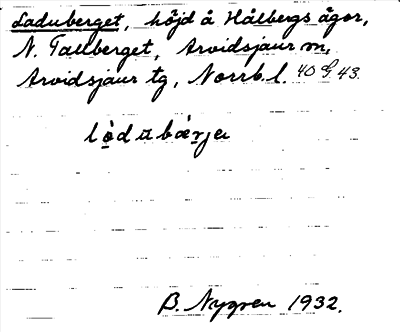 Laduberget, höjd å Hålbergs ägor,
N. Tallberget, Arvidsjaur sn,
Arvidsjaur tg, Norrb. l. 40 G 43.
lò̱dɑbær̲jɐ
B. Nygren 1932.